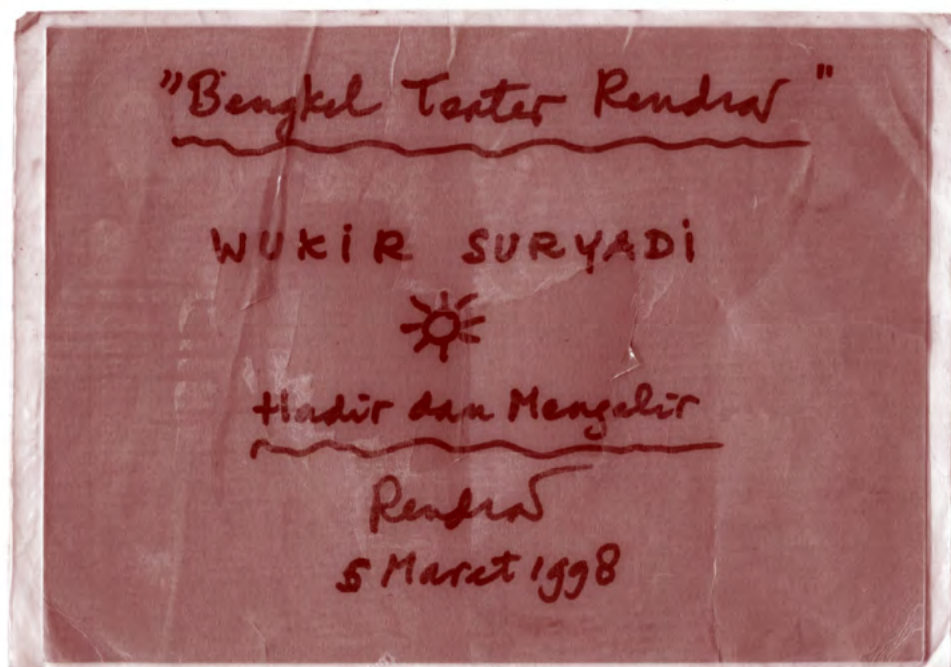 "Bengkel Teater Rendra"
WUKIR SURYADI
Hadir dan Mengalir
Rendra
5 Maret 1998